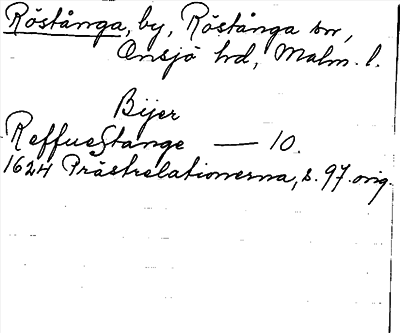 Röstånga, by, Röstånga sn,
Onsjö hrd, Malm. l.
Bijer
ReffueStange — 10.
1624 Prästrelationerna, s. 97. orig.